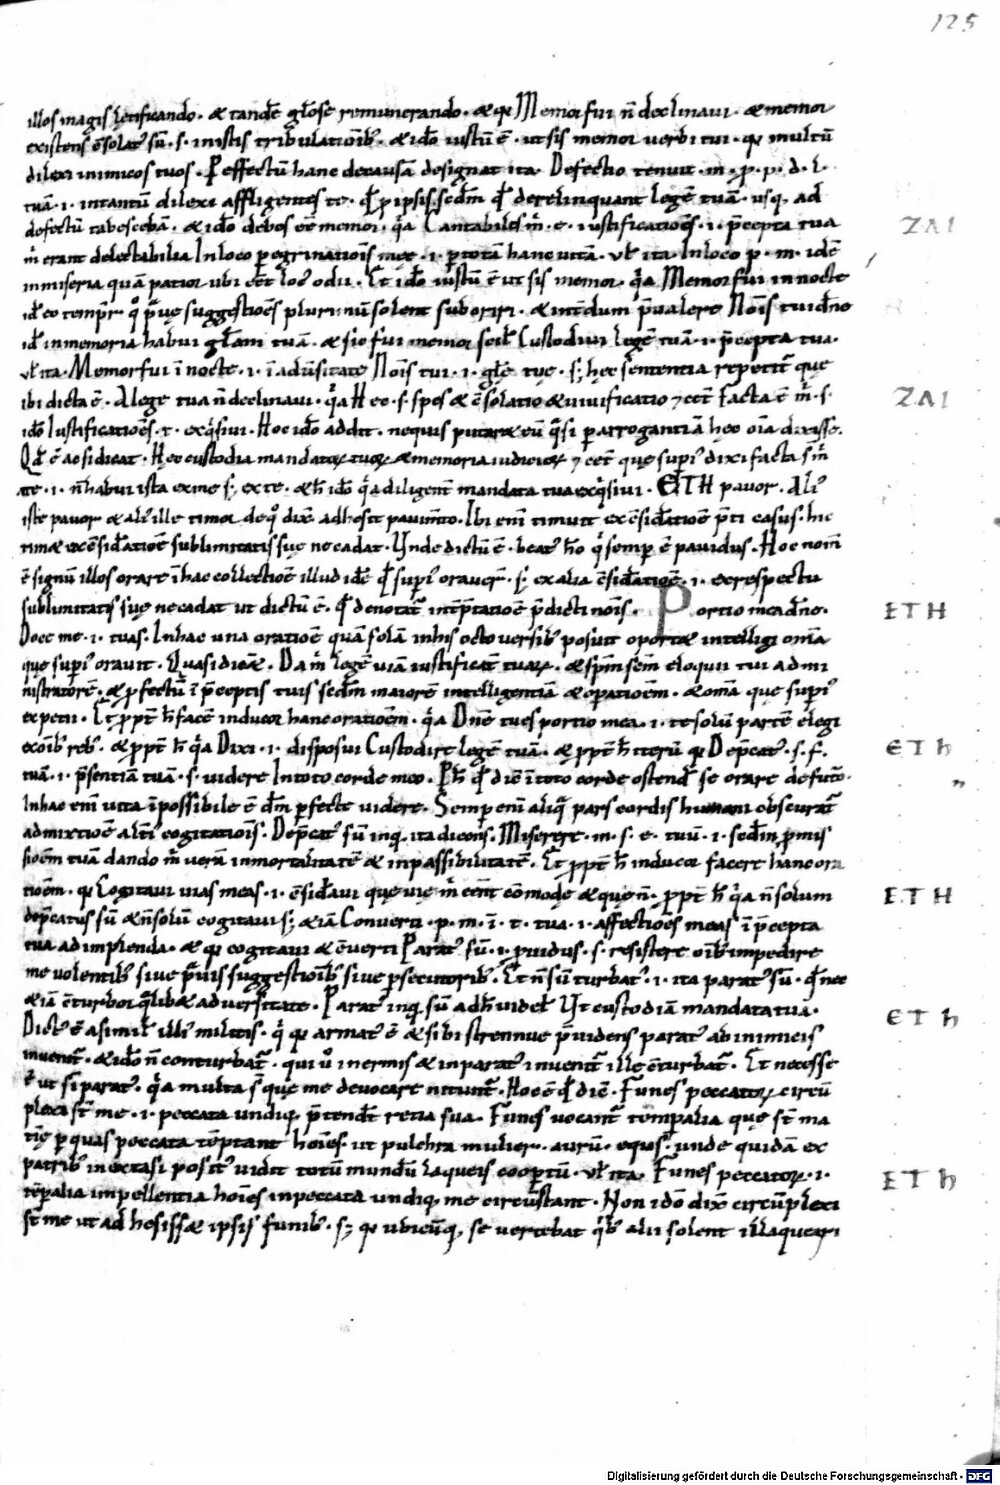 125
illos magis letificando · & tandē gl̄ose remunerando · & qꝛ Memor fui n̄ declinaui · & memor
existens c̄solatꝰ sū · s · in istis tribulatiōibꝰ · & id̄o iustū ē · ut sis memor uerbi tui · qꝛ multū
dilexi inimicos tuos · P effectū hanc de causā designat ita · Defectio tenuit · m · p · p · d · l ·
tuā · i · in tantū dilexi affligentes te · qd̄ p ipsis
defectū tabescebā · & id̄o debes eē memor · q̄a Cantabiles m̄ · e · iustificatiōes · i · p̄cepta tua
ZAI
m̄ erant delectabilia In loco pegrinatiōis meę · i · p totā hanc uitā · ul̄ ita · In loco p · m · idē
in miseria quā patior ubi · Et id̄o iustū ē ut sis memor · q̄a Memor fui in nocte
suggestiōes plurimū solent suboriri · & int̄dum p̄ualere Nōis tui dn̄e
id̄ in memoria habui gl̄am tuā · & sic fui memor scil̄ Custodiui legē tuā · i · p̄cepta tua ·
ul̄ ita · Memor fui ī nocte · i · ī adūsitate Nōis tui · i · gl̄ę tuę · s; hęc sententia repetit᷑ quę
ibi dicta ē · A lege tua n̄ declinaui · q̄a Hec · s · spes & c̄solatio & uiuificatio ⁊ cet̄ facta ē m̄ · s ·
ZAI
id̄o Iustificatiōes · t · exq̄siui · Hoc id̄o addit · ne quis putaret eū q̄si p arrogantiā hec oīa dixisse ·
Qd̄ ē ac si dicat · Hec custodia mandatoꝝ tuoꝝ & memoria iudicioꝝ ⁊ cet̄ que supi dixi facta s̄ m̄
a te · i · n̄ habui ista ex me s; ex te · & h̄ id̄o q̄a diligent̄ mandata tua exq̄siui · ETH pauor · Aliꝰ
iste pauor & aliꝰ ille timor de qͦ dix̄ adhesit pauim̄to · Ibi enī timuit ex c̄sid̄atiōe p̄ti casus · hic
timet ex c̄sid̄atiōe sublimitatis suę ne cadat · Unde dictū ē · beatꝰ hō q̄ semp ē pauidus · Hoc nom̄
ē signū illos orare ī hac collectiōe illud idē qd̄ supi orauer̄ · s; ex alia c̄sid̄atiōe · i · ex respectu
sublimitatis suę ne cadat ut dictū ē · qd̄ denotat᷑ int̄p̄tatiōe p̄dicti nōis · Portio mea dn̄e ·
ETH
Docē me · i · tuas · In hac una oratiōe quā solā in his octo uersibꝰ posuit oportet intelligi om̄ia
quę supi orauit · Quasi dicāt · Da m̄ legē uiā iustificat̄ tuaꝝ · & spm̄ sc̄m eloquii tui ad mi
nistratorē · & pfectū ī p̄ceptis tuis sed̄m maiorē intelligentiā & opatiōem · & om̄a quę supi
expetii · Et ppt̄ h̄ facē inducor hanc oratioēm · q̄a Dn̄e tu es portio mea · i · te solū partē elegi
ex oībꝰ rebꝰ · & ppt̄ h̄ q̄a Dixi · i · disposui Custodire legē tuā · & ppt̄ h̄ iterū qꝛ Dep̄catꝰ · s · f ·
ETh
tuā · i · p̄sentiā tuā · s · uidere In toto corde meo · P h̄ qd̄ dic̄ ī toto corde ostend̄ se orare de futo ·
In hac enī uita īpossibile ē dm̄ pfecte uidere · Semp enī aliq̄ pars cordis humani obscurat᷑
admixtiōe alt̄i cogitatiōis · Dep̄catꝰ sū inq̄ · ita dicens · Miserere · m · s · e · tuū · i · sed̄m pmis
siōem tuā dando m̄ uerā inmortalitatē & inpassibilitatē · Et ppt̄ h̄ inducor facere hanc ora
tiōem · qꝛ Cogitaui uias meas · i · c̄sid̄aui quę uię m̄ eēnt cōmodę & quę n̄ · ppt̄ h̄ q̄a n̄ solum
ETH
dep̄catus sū & n̄ solū cogitaui s; & iā Conuerti · p · m · ī · t · tua · i · affectiōes meas ī p̄cepta
tua adimplenda · & qꝛ cogitaui & c̄uerti Paratꝰ sū · i · puidus · s · resistere oībꝰ impedire
me uolentibꝰ siue p̄uis suggestiōibꝰ siue psecutoribꝰ · Et n̄ sū turbatꝰ · i · ita paratꝰ sū · qd̄ nec
& iā c̄turbor q̄libet aduersitate · Paratꝰ inq̄ sū ad h̄ uidel̄ Ut custodiā mandata tua ·
ETh
Dictꝰ ē a simil̄ illi militis · q̄ qꝛ armatꝰ ē & sibi strennue p̄uidens paratꝰ ab inimicis
inuenit᷑ · & id̄o n̄ conturbat᷑ · qui uͦ inermis & inparatꝰ inuenit᷑ ille c̄turbat᷑ · Et necesse
ē ut sī paratꝰ · q̄a multa s̄ quę me deuocare nitunt᷑ · Hoc ē qd̄ dic̄ · Funes peccatoꝝ circū
plexi st̄ me · i · peccata undiq; p̄tend̄t retia sua · Funes uocant᷑ temporalia quę st̄ ma
tię p quas peccata tēptant hoīes · ut pulchra mulier · aurū · equs · unde quidā ex
patribꝰ in extasi positꝰ uidit totū mundū laqueis coop̄tū · ul̄ ita · Funes peccatoꝝ · i ·
ETh
tēpalia impellentia hoīes in peccata undiq; me circūstant · Non id̄o dix̄ circūplexi
st̄ me ut adhesisset ipsis funibꝰ · s; qꝛ ubicūq; se uertebat q̄bꝰ alii solent illaqueari
Digitalisierung gefördert durch die Deutsche Forschungsgemeinschaft - DFG